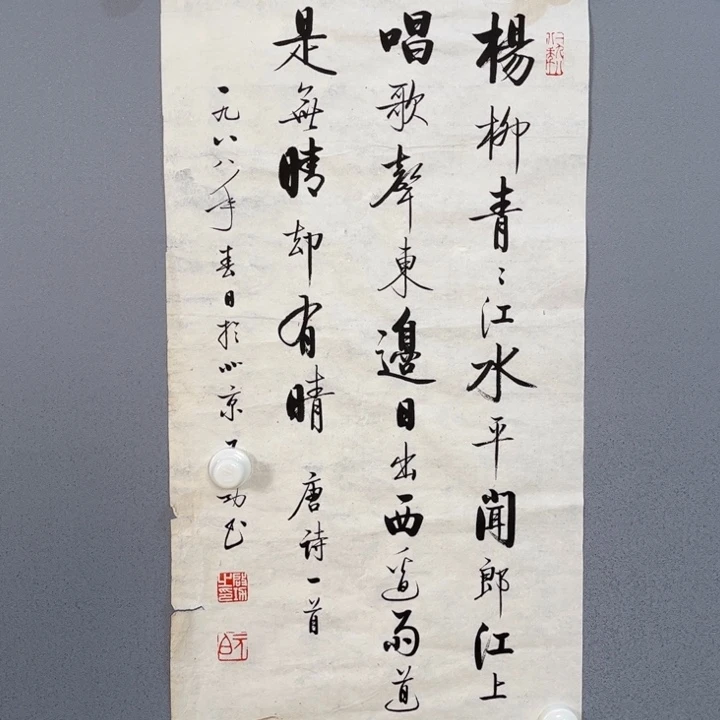 楊柳青〻江水平聞郎江上
唱歌聲東邊日出西邊雨道
是無晴却有晴 唐詩一首
一九八八年春日於北京 功书
啟功之印
元白